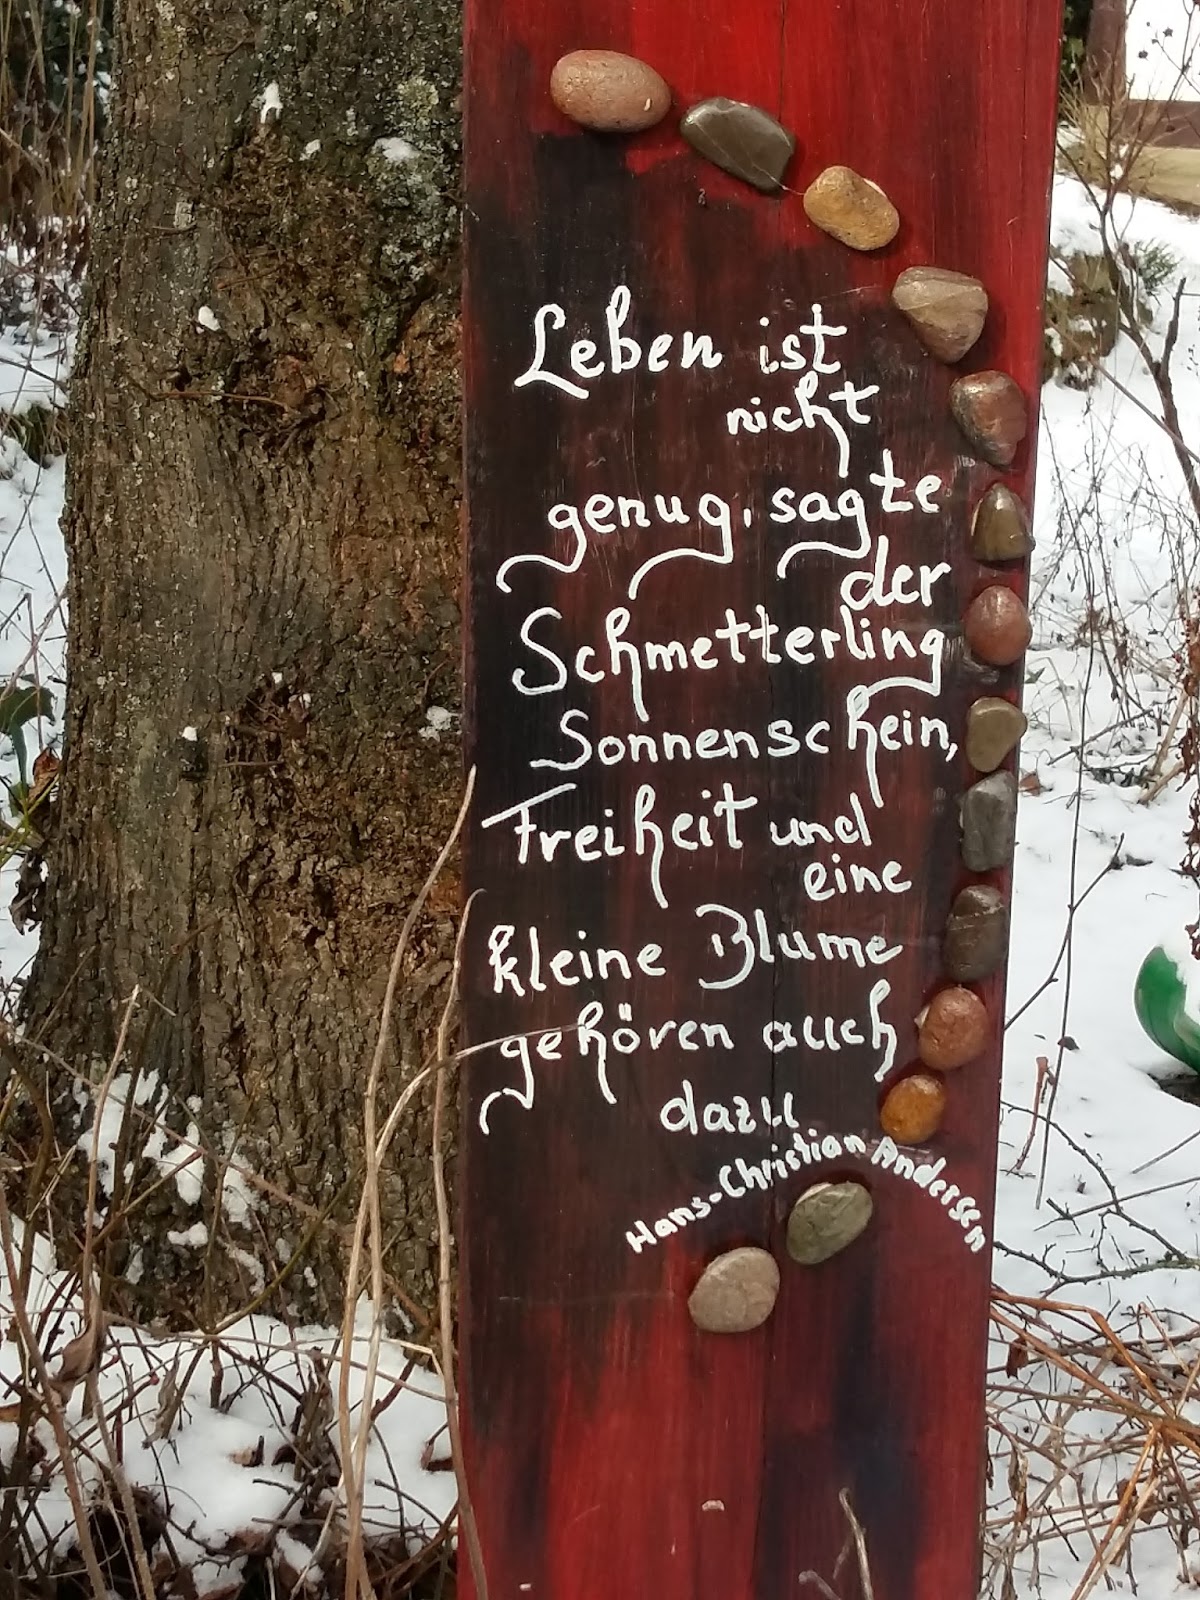 Leben ist
nicht
genug, sagte
der
Schmetterling
Sonnenschein,
Freiheit und
eine
kleine Blume
gehören auch
dazu
Hans-Christian Andersen